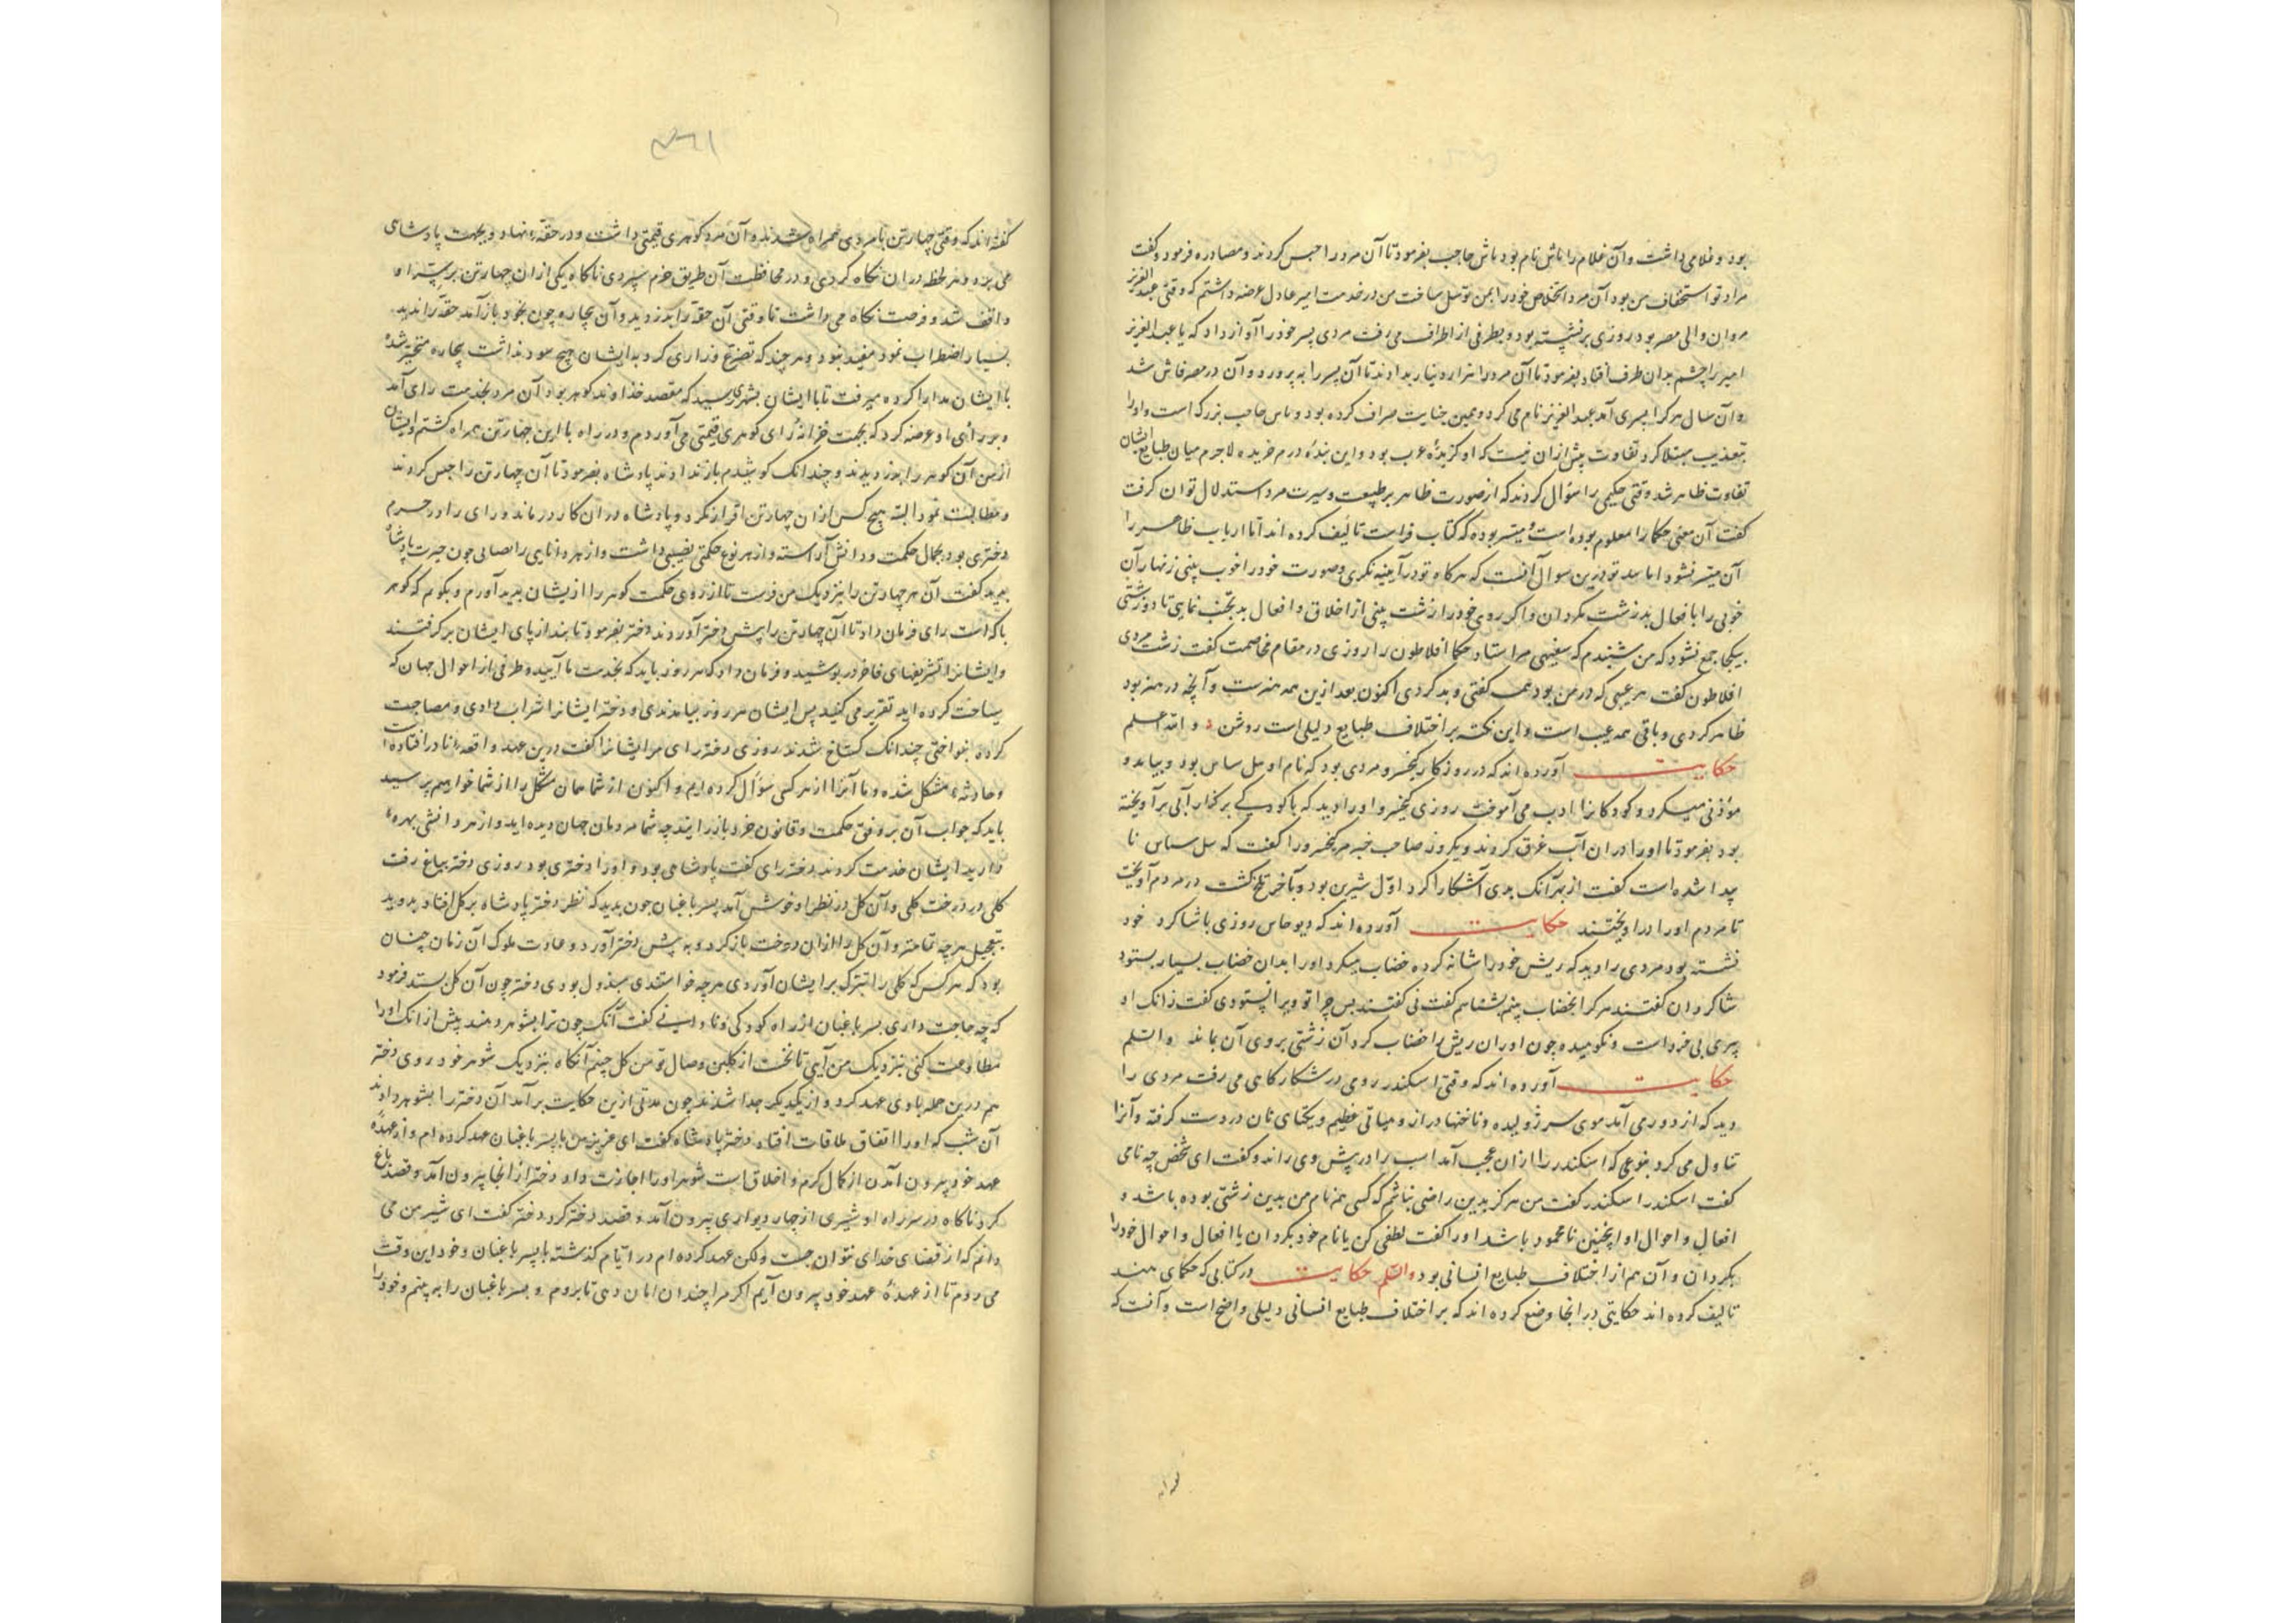 بود و غلامی داشت و آن غلام را تاش نام بود تاش حاجب بفرمود تا آن مرد را حبس کردند و مصادره فرمود و گفت
مراد تو استخفاف من بود آن مرد اخلاص خود را بمن توسل ساخت من در خدمت امیر عادل عرضه داشتم که وقتی عبد العزیز
مروان والی مصر بود روزی برنشسته بود و بطرفی از اطراف می رفت مردی پسر خود را آواز داد که یا عبد العزیز
امیر را چشم بدان طرف افتاد بفرمود تا آن مرد را هزار دینار بدادند تا آن پسر را به پرورد و آن در مصر فاش شد
و آن سال هر کرا پسری آمد عبد العزیز نام می کرد و همین جنایت صراف کرده بود و تاس حاجب بزرگ است و او را
بتعذیب مبتلا کرد تفاوت بیش ازان نیست که او گزیدهٔ عرب بود و این بندهٔ درم خریده لاجرم میان طبایع ایشان
تفاوت ظاهر شد وقتی حکیمی را سؤال کردند که از صورت ظاهر بر طبیعت و سیرت مرد استدلال توان گرفت
گفت آن معنی حکما را معلوم بوده است و میسر بوده که کتاب فراست تألیف کرده اند اما ارباب ظاهر را
آن میسر نشود اما سد تو درین سوال آنست که هرگاه تو در آیینه نگری و صورت خود را خوب بینی زنهار آن
خوبی را بافعال بد زشت مگردان و اگر روی خود را زشت بینی از اخلاق و افعال بد تجنب نمایی تا دو زشتی
بیکجا جمع نشود که من شنیدم که سفیهی مر استاد حکما افلاطون را روزی در مقام مخاصمت گفت زشت مردی
افلاطون گفت هر عیبی که در من بود همه گفتی و بد کردی اکنون بعد ازین همه هنرست و آنچه در هنر بود
ظاهر کردی و باقی همه عیب است و این نکته بر اختلاف طبایع دلیلی است روشن و الله اعلم
حکایت آورده اند که در روزگار کیخسرو مردی بود که نام او سل ساس بود و بیامد و
مؤذنی میکرد و کودکانرا ادب می آموخت روزی کیخسرو او را دید که با کودکی بر کنار آبی برآویخته
بود بفرمود تا او را دران آب غرق کردند و یکروز صاحب خبر مر کیخسرو را گفت که سل سساس نا
پیدا شده است گفت از بهر آنک بدی آشکارا کرد اول شیرین بود و بآخر تلخ گشت در مردم آویخت
تا مردم او را درآویختند حکایت آورده اند که دیوجاس روزی با شاگرد خود
نشسته بود مردی را دید که ریش خود را شانه کرده خضاب میکرد او را بدان خضاب بسیار بستود
شاگردان گفتند هر کرا بخضاب بینم بشناهم گفت نی گفتند پس چرا تو ویرا بستودی گفت زانک او
پیری بی خرد است و نکوهیده چون او ران ریش را خضاب کرد آن زشتی بروی آن بماند و السلم
حکایت آورده اند که وقتی اسکندر رومی در شکارگاهی می رفت مردی را
دید که از دور می آمد موی سر ژولیده و ناخنها دراز و میاتی عظیم و یکتای نان در دست گرفته و آنرا
تناول می کرد بنوعی که اسکندر را ازان عجب آمد اسب را در پیش وی راند و گفت ای شخص چه نامی
گفت اسکندر اسکندر گفت من هرگز بدین راضی نباشم که کسی هم نام من بدین زشتی بوده باشد و
افعال و احوال او اینچنین نامحمود باشد او را گفت لطفی کن یا نام خود بگردان یا افعال و احوال خود را
بگردان و آن هم از اختلاف طبایع انسانی بود والسلم حکایت در کتابی که حکمای هند
تالیف کرده اند حکایتی در انجا وضع کرده اند که بر اختلاف طبایع انسانی دلیلی واضح است و آنست که
گفته اند که وقتی چهارتن با مردی همراه شدند و آن مرد گوهری قیمتی داشت و در حقهٔ نهاد و بجهت پادشاهی
می برد و هر لحظه دران نگاه کردی و در محافظت آن طریق حزم سپردی ناگاه یکی از ان چهارتن بر سر او
واقف شد و فرصت نگاه می داشت تا وقتی آن حقه را بدزدید و آن بیچاره چون بخود باز آمد حقه را ندید
بسیار اضطراب نمود مفید نبود و هر چند که تضرع و زاری کرد بدایشان هیچ سود نداشت بیچاره متحیر شده
با ایشان مدارا کرده میرفت تا با ایشان بشهری رسید که مقصد خداوند گوهر بود آن مرد بخدمت رای آمد
و بر رأی او عرضه کرد که بجهت خزانهٔ رای گوهری قیمتی می آوردم و در راه با این چهارتن همراه گشتم و ایشان
از من آن گوهر را بدزدیدند و چندانک کوشیدم باز ندادند پادشاه بفرمود تا آن چهارتن را حبس کردند
و مطالبت نمود البته هیچ کس ازان چهارتن اقرار نکرد و پادشاه دران کار درماند و رای را در حرم
دختری بود بجمال حکمت و دانش آراسته و از هر نوع حکمتی نصیبی داشت و از هر دانایی را نصابی چون حیرت پادشاه
بدید گفت آن هر چهارتن را بنزدیک من فرست تا از روی حکمت گوهر را از یشان پدید آورم و بگویم که گوهر
با که است رای فرمان داد تا آن چهارتن را پیش دختر آوردند دختر بفرمود تا بند از پای ایشان برگرفتند
و ایشانرا تشریفهای فاخر در پوشید و فرمان داد که هر روز باید که بخدمت ما آیید و طرفی از احوال جهان که
سیاحت کرده اید تقریر می کنید پس ایشان هر روز بیامدندی و دختر ایشانرا شراب دادی و مصاحبت
کرده بنواختی چندانک گستاخ شدند روزی دختر رای مر ایشانرا گفت درین عهد واقعهٔ ما را در افتاده است
و حادثهٔ مشکل شده و ما آنرا از هر کسی سؤال کرده ایم و اکنون از شما همان مشکل را از شما خواهیم پرسید
باید که جواب آن بر وفق حکمت و قانون خرد باز رانید چه شما مردمان جهان دیده اید و از هر دانشی بهرهٔ
دارید ایشان خدمت کردند دختر رای گفت پادشاهی بود و او را دختری بود روزی دختر بباغ رفت
گلی در درخت گلی و آن گل در نظر او خوش آمد پسر باغبان چون بدید که نظر دختر پادشاه بر گل افتاد بدوید
بتعجیل هر چه تمامتر و آن گل را ازان درخت باز کرد و به پیش دختر آورد و عادت ملوک آن زمان چنان
بود که هر کس که گلی را تبرک بر ایشان آوردی هر چه خواستندی مبذول بودی دختر چون آن گل بستد فرمود
که چه حاجت داری پسر باغبان از راه کودکی و نادانی گفت آنک چون ترا بشوهر دهند پیش از انک او را
مطاوعت کنی بنزدیک من آیی تا نخست از گلبن وصال تو من گل چینم آنگاه بنزدیک شوهر خود روی دختر
هم درین جمله با وی عهد کرد و از یکدیگر جدا شدند چون مدتی ازین حکایت برآمد آن دختر را بشوهر دادند
آن شب که او را اتفاق ملاقات افتاد دختر پادشاه گفت ای عزیز من با پسر باغبان عهد کرده ام و از عهدهٔ
عهد خود بیرون آمدن از کمال کرم و اخلاق است شوهر او را اجازت داد دختر از انجا بیرون آمد و قصد باغ
کرد ناگاه در سر راه او شیری از چار دیواری بیرون آمد و قصد دختر کرد دختر گفت ای شیر من می
دانم که از قضای خدای نتوان جست ولکن عهد کرده ام در ایام گذشته با پسر باغبان و خود این وقت
می روم تا از عهدهٔ عهد خود بیرون آیم اگر مرا چندان امان دهی تا بروم و پسر باغبان را به بینم و خود را